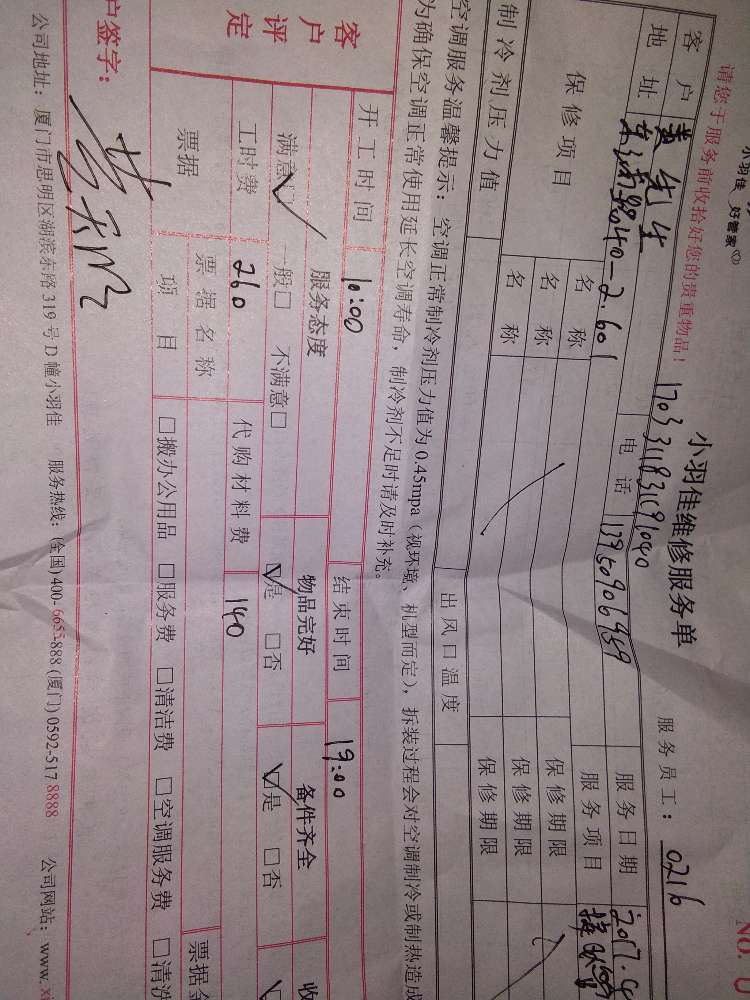 小羽佳 好管家
NO. 0
请您于服务前收拾好您的贵重物品!
小羽佳维修服务单
服务员工: 0216
客户 黄先生 电话 13950906959 服务日期 2017.
地址 2.601 服务项目
保修项目 名称 保修期限
名称 保修期限
名称 保修期限
制冷剂压力值 出风口温度
空调服务温馨提示: 空调正常制冷剂压力值为0.45mpa(视环境、机型而定), 拆装过程会对空调制冷或制热造成
为确保空调正常使用延长空调寿命, 制冷剂不足时请及时补充。
开工时间 10:00 结束时间 19:00
客户评定 服务态度 物品完好 备件齐全 收
满意☑ 一般□ 不满意□ ☑是 □否 ☑是 □否
工时费 260 代购材料费 140
票据 票据名称 票据金
项目 □搬办公用品 □服务费 □清洁费 □空调服务费 □清洗
户签字:
公司地址: 厦门市思明区湖滨东路319号D幢小羽佳 服务热线: (全国)400-6655-888 (厦门)0592-517 8888 公司网站: www.xi